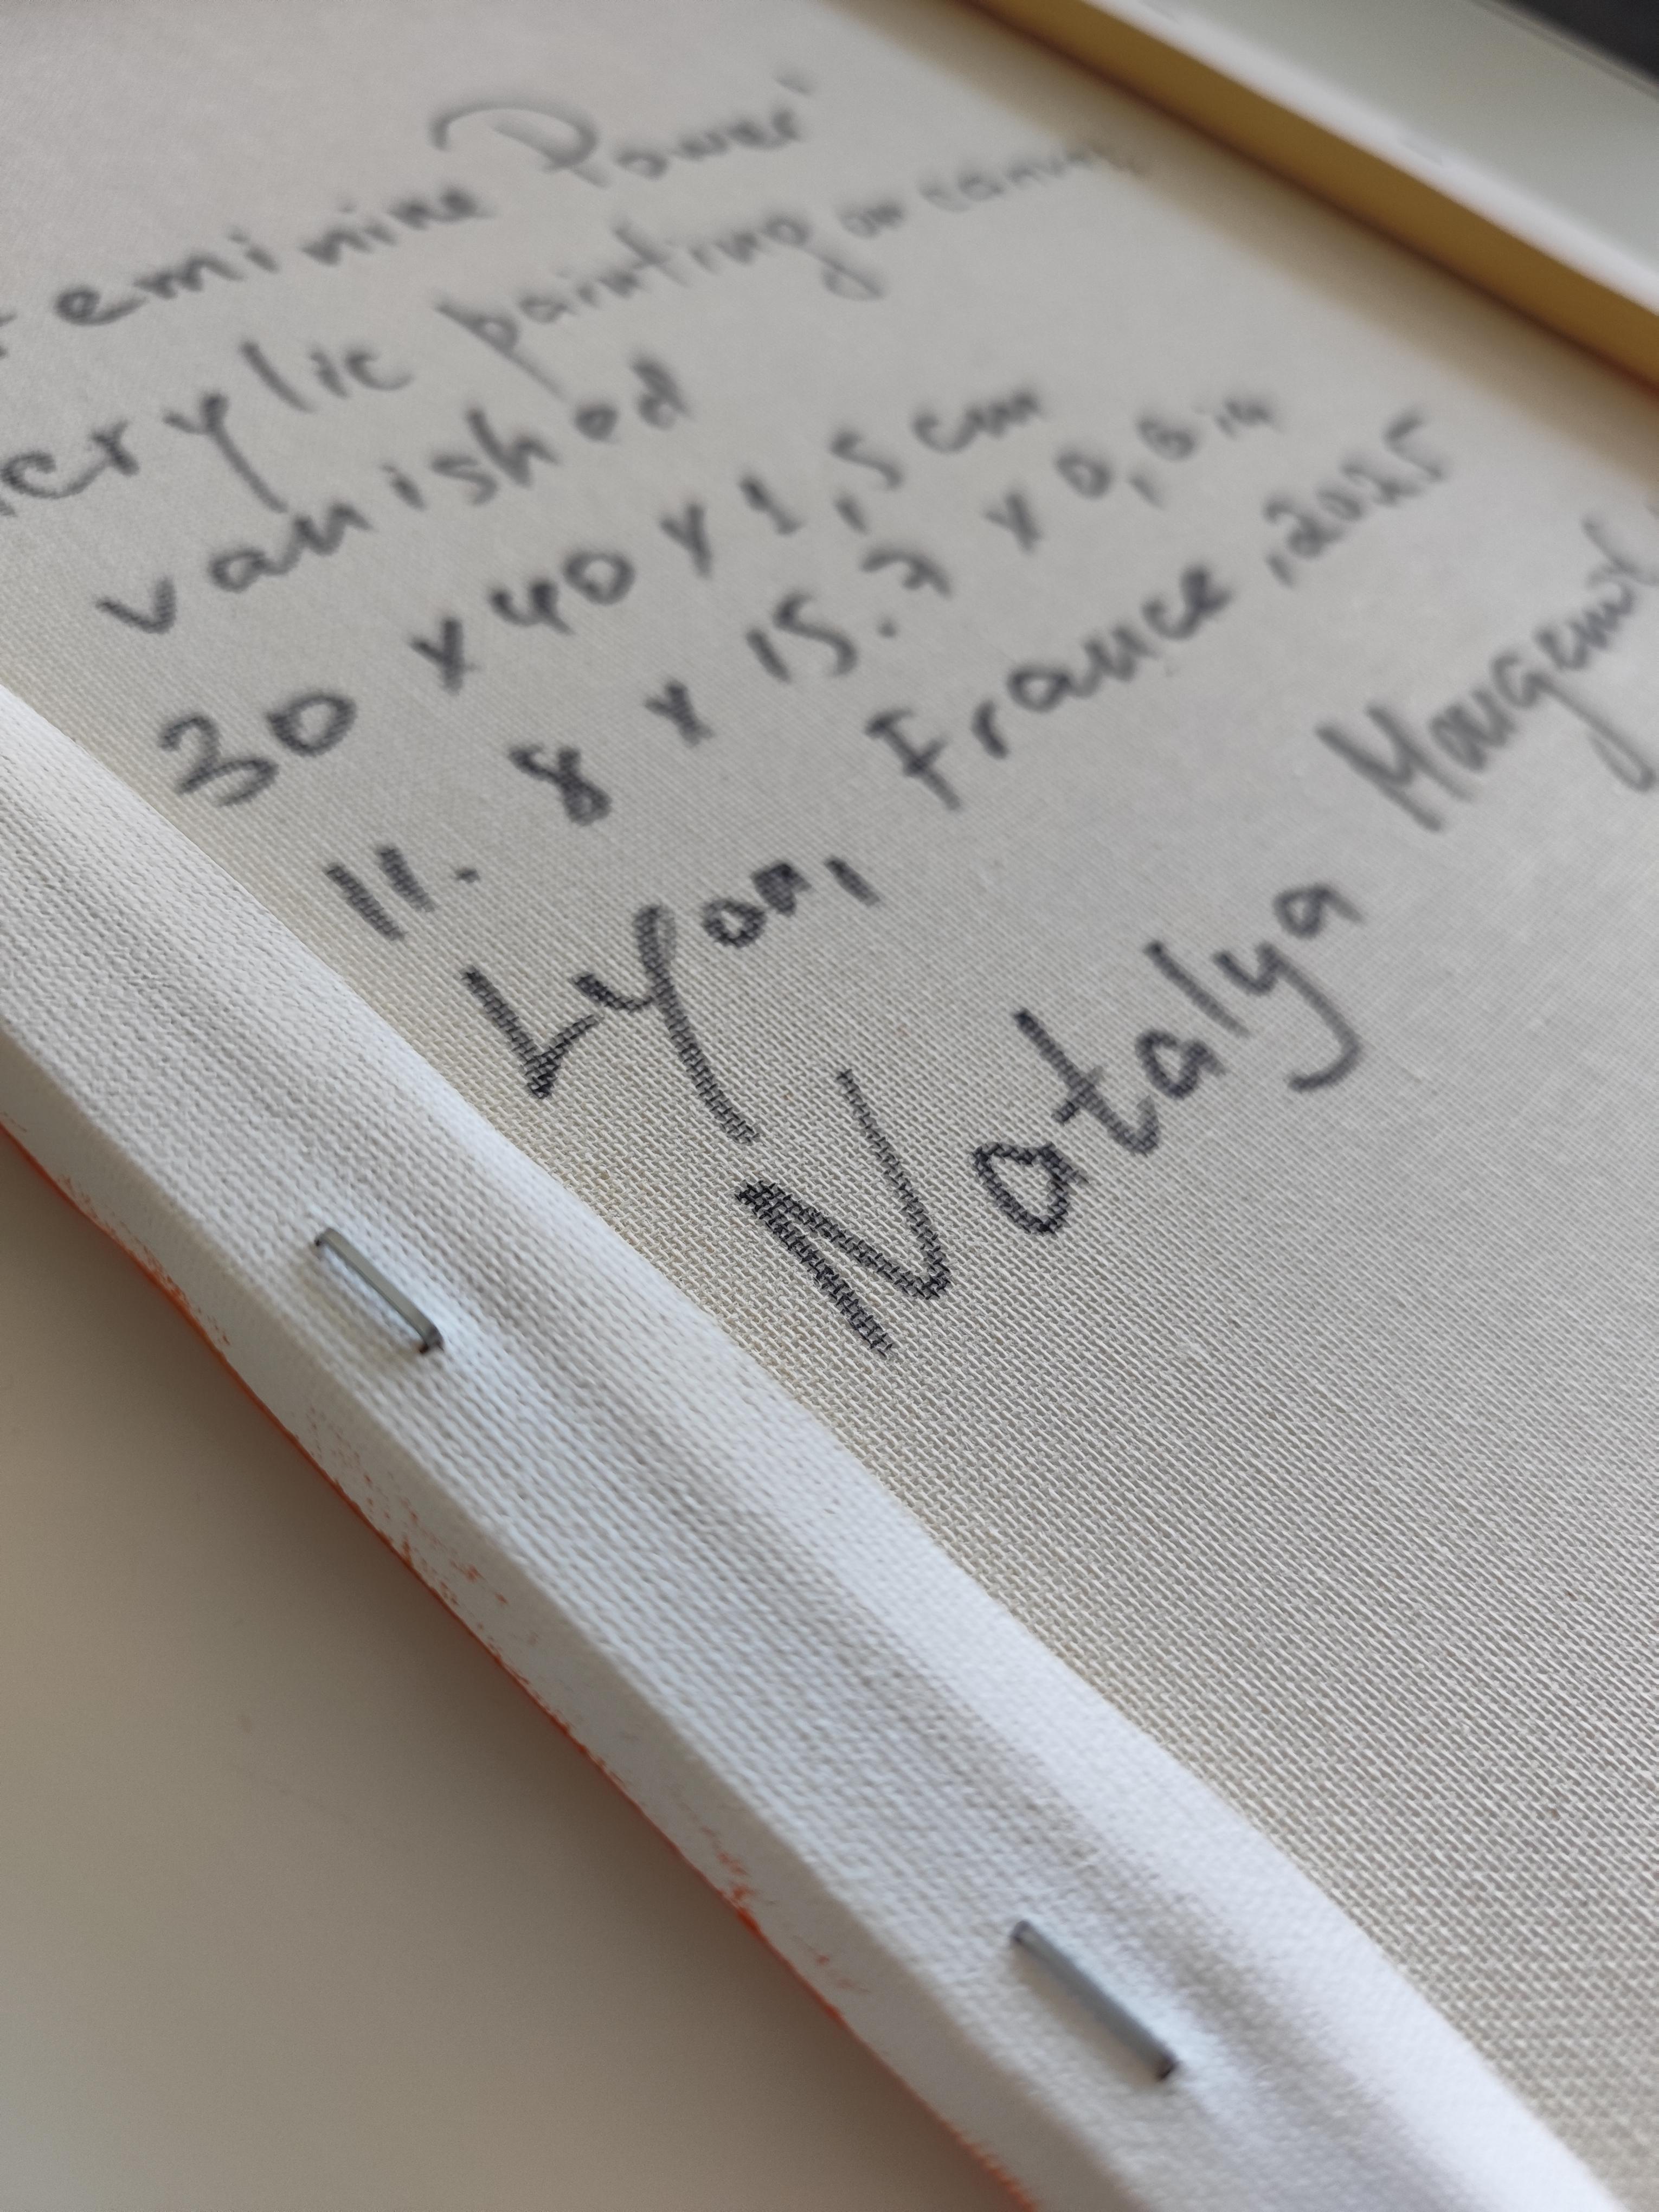 Feminine Power"
Acrylic painting on canvas,
vanished
30 x 40 x 1,5 cm
11.8 x 15.7 x 0,6 in
Lyon, France, 2025
Natalya Mougenot